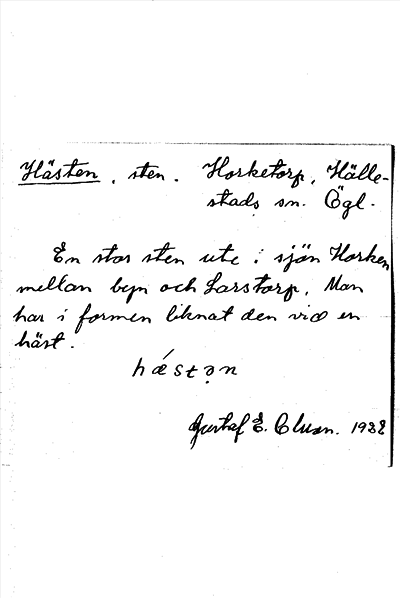 Hästen, sten. Horketorp, Hälle-
stads sn. Ögl.
En stor sten ute i sjön Horken
mellan byn och Larstorp. Man
har i formen liknat den vid en
häst.
hǽstə̣n
Gustaf E. Clusn. 1932